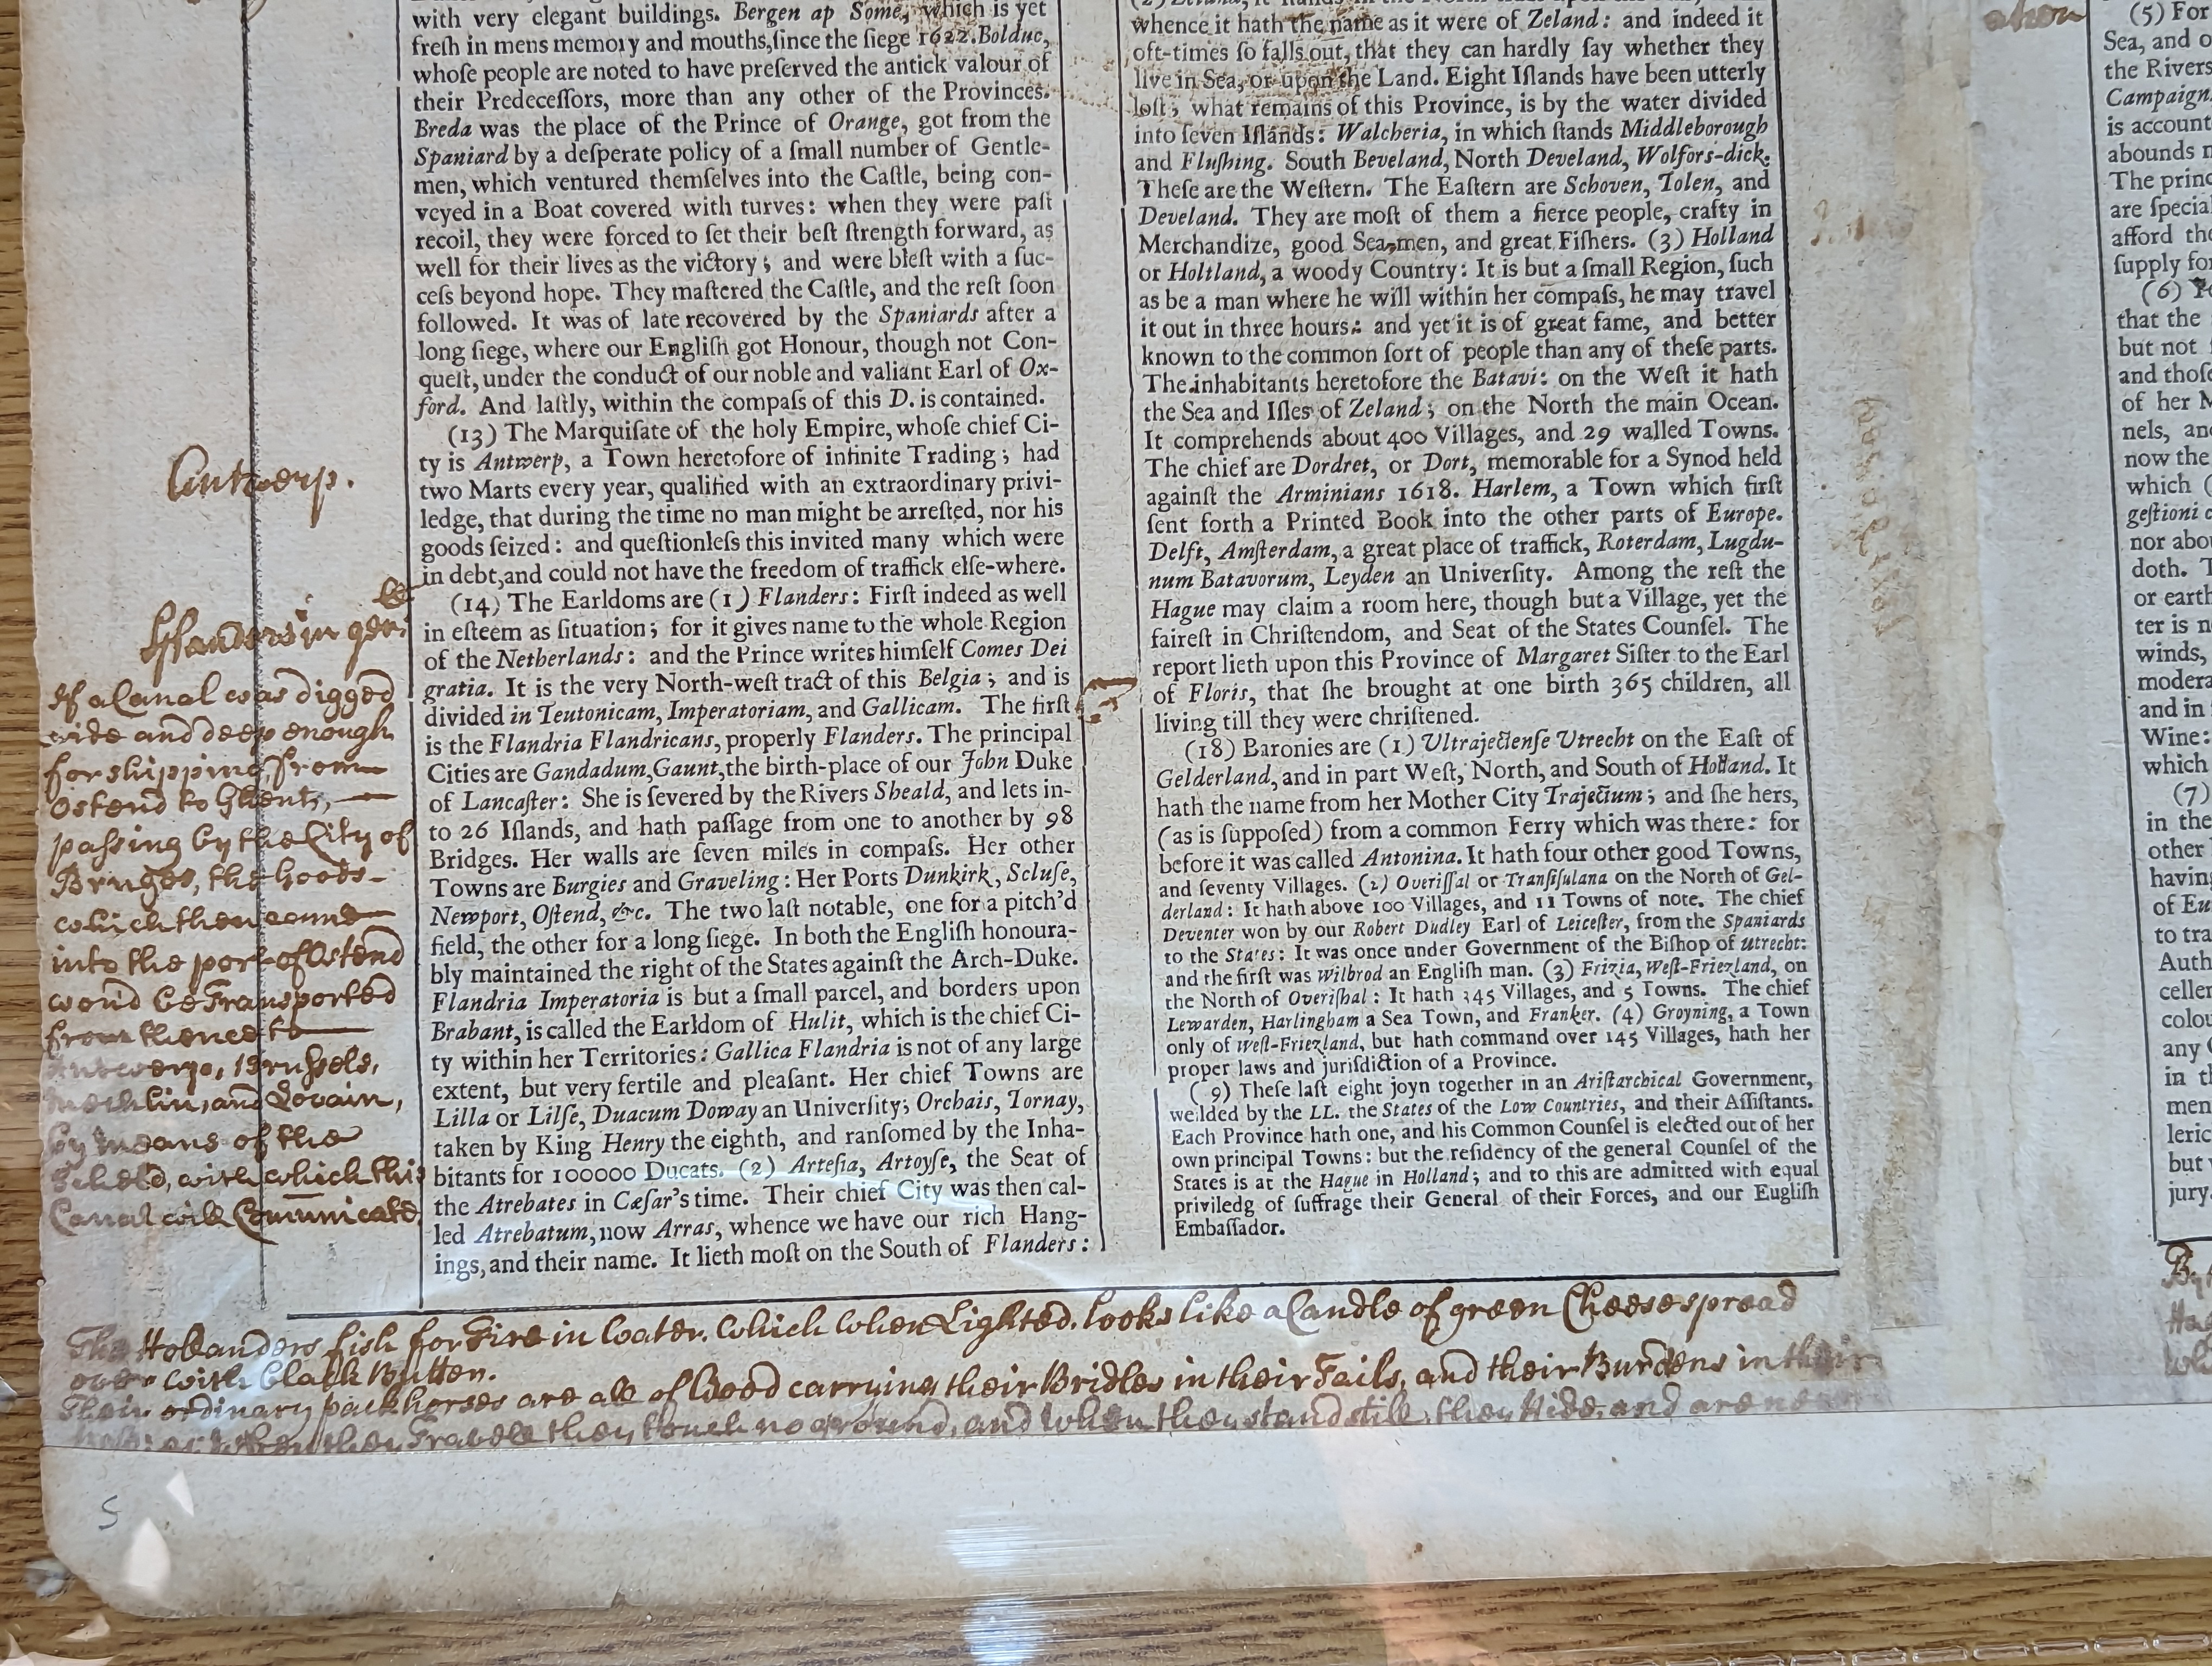 with very elegant buildings. Bergen ap Some, which is yet
freſh in mens memory and mouths,ſince the ſiege 1622. Bolduc,
whoſe people are noted to have preſerved the antick valour of
their Predeceſſors, more than any other of the Provinces.
Breda was the place of the Prince of Orange, got from the
Spaniard by a deſperate policy of a ſmall number of Gentle-
men, which ventured themſelves into the Caſtle, being con-
veyed in a Boat covered with turves: when they were paſt
recoil, they were forced to ſet their beſt ſtrength forward, as
well for their lives as the victory; and were bleſt with a ſuc-
ceſs beyond hope. They maſtered the Caſtle, and the reſt ſoon
followed. It was of late recovered by the Spaniards after a
long ſiege, where our Engliſh got Honour, though not Con-
queſt, under the conduct of our noble and valiant Earl of Ox-
ford. And laſtly, within the compaſs of this D. is contained.
(13) The Marquiſate of the holy Empire, whoſe chief Ci-
ty is Antwerp, a Town heretofore of infinite Trading; had
two Marts every year, qualified with an extraordinary privi-
ledge, that during the time no man might be arreſted, nor his
goods ſeized: and queſtionleſs this invited many which were
in debt,and could not have the freedom of traffick elſe-where.
(14) The Earldoms are (1) Flanders: Firſt indeed as well
in eſteem as ſituation; for it gives name to the whole Region
of the Netherlands: and the Prince writes himſelf Comes Dei
gratia. It is the very North-weſt tract of this Belgia; and is
divided in Teutonicam, Imperatoriam, and Gallicam. The firſt
is the Flandria Flandricans, properly Flanders. The principal
Cities are Gandadum,Gaunt,the birth-place of our John Duke
of Lancaſter: She is ſevered by the Rivers Sheald, and lets in-
to 26 Iſlands, and hath paſſage from one to another by 98
Bridges. Her walls are ſeven miles in compaſs. Her other
Towns are Burgies and Graveling: Her Ports Dunkirk, Scluſe,
Newport, Oſtend, &c. The two laſt notable, one for a pitch'd
field, the other for a long ſiege. In both the Engliſh honoura-
bly maintained the right of the States againſt the Arch-Duke.
Flandria Imperatoria is but a ſmall parcel, and borders upon
Brabant, is called the Earldom of Hulit, which is the chief Ci-
ty within her Territories: Gallica Flandria is not of any large
extent, but very fertile and pleaſant. Her chief Towns are
Lilla or Lilſe, Duacum Doway an Univerſity; Orchais, Tornay,
taken by King Henry the eighth, and ranſomed by the Inha-
bitants for 100000 Ducats. (2) Arteſia, Artoyſe, the Seat of
the Atrebates in Cæſar's time. Their chief City was then cal-
led Atrebatum, now Arras, whence we have our rich Hang-
ings, and their name. It lieth moſt on the South of Flanders:
whence it hath the name as it were of Zeland: and indeed it
oft-times ſo falls out, that they can hardly ſay whether they
live in Sea, or upon the Land. Eight Iſlands have been utterly
loſt; what remains of this Province, is by the water divided
into ſeven Iſlands: Walcheria, in which ſtands Middleborough
and Fluſhing. South Beveland, North Develand, Wolfors-dick.
Theſe are the Weſtern. The Eaſtern are Schoven, Tolen, and
Develand. They are moſt of them a fierce people, crafty in
Merchandize, good Sea-men, and great Fiſhers. (3) Holland
or Holtland, a woody Country: It is but a ſmall Region, ſuch
as be a man where he will within her compaſs, he may travel
it out in three hours: and yet it is of great fame, and better
known to the common ſort of people than any of theſe parts.
The inhabitants heretofore the Batavi: on the Weſt it hath
the Sea and Iſles of Zeland; on the North the main Ocean.
It comprehends about 400 Villages, and 29 walled Towns.
The chief are Dordret, or Dort, memorable for a Synod held
againſt the Arminians 1618. Harlem, a Town which firſt
ſent forth a Printed Book into the other parts of Europe.
Delft, Amſterdam, a great place of traffick, Roterdam, Lugdu-
num Batavorum, Leyden an Univerſity. Among the reſt the
Hague may claim a room here, though but a Village, yet the
faireſt in Chriſtendom, and Seat of the States Counſel. The
report lieth upon this Province of Margaret Siſter to the Earl
of Floris, that ſhe brought at one birth 365 children, all
living till they were chriſtened.
(18) Baronies are (1) Ultrajectenſe Utrecht on the Eaſt of
Gelderland, and in part Weſt, North, and South of Holland. It
hath the name from her Mother City Trajectum; and ſhe hers,
(as is ſuppoſed) from a common Ferry which was there: for
before it was called Antonina. It hath four other good Towns,
and ſeventy Villages. (2) Overiſſal or Tranſiſulana on the North of Gel-
derland: It hath above 100 Villages, and 11 Towns of note. The chief
Deventer won by our Robert Dudley Earl of Leiceſter, from the Spaniards
to the States: It was once under Government of the Biſhop of Utrecht:
and the firſt was Wilbrod an Engliſh man. (3) Frizia, Weſt-Friezland, on
the North of Overiſhal: It hath 345 Villages, and 5 Towns. The chief
Lewarden, Harlingham a Sea Town, and Franker. (4) Groyning, a Town
only of Weſt-Friezland, but hath command over 145 Villages, hath her
proper laws and jurisdiction of a Province.
( 9) Theſe laſt eight joyn together in an Ariſtarchical Government,
weilded by the LL. the States of the Low Countries, and their Aſſiſtants.
Each Province hath one, and his Common Counſel is elected out of her
own principal Towns: but the reſidency of the general Counſel of the
States is at the Hague in Holland; and to this are admitted with equal
priviledg of ſuffrage their General of their Forces, and our Eugliſh
Embaſſador.
Antwerp.
Flanders in gen
If a Canal was digged
wide and deep enough
for shipping, from
Ostend to Ghent,
passing by the City of
Bruges, the Goods
which then come
into the port of Ostend
woud be Transported
from thence to
Antwerp, Brussels,
Mechlin, and Lovain,
by means of the
Scheld, with which this
Canal will Comunicate
The Hollanders fish for Fire in Water. Which when Lighted, looks like a Candle of green Cheese spread
over with black Butter.
Their ordinary packhorses are all of Wood carrying their Bridles in their Tails, and their Burdens in their
when they Travell they touch no ground, and when they stand still, they Ride, and are
5
(5) For
Sea, and o
the Rivers
Campaign
is account
abounds
The princ
are ſpecial
afford the
ſupply for
(6)
that the
but not
and thoſe
of her M
nels, and
now the
which (
geſtioni
nor abou
doth.
or earth
ter is n
winds,
modera
and in
Wine:
which
(7)
in the
other
having
of Eu
to tra
Auth
celler
colou
any
in th
men
leric
but
jury.